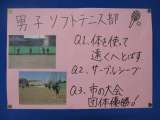 男子 ソフトテニス部
Q1.体を使って
遠くへとばす
Q2.サーブレシーブ
Q3.市の大会
団体優勝!!